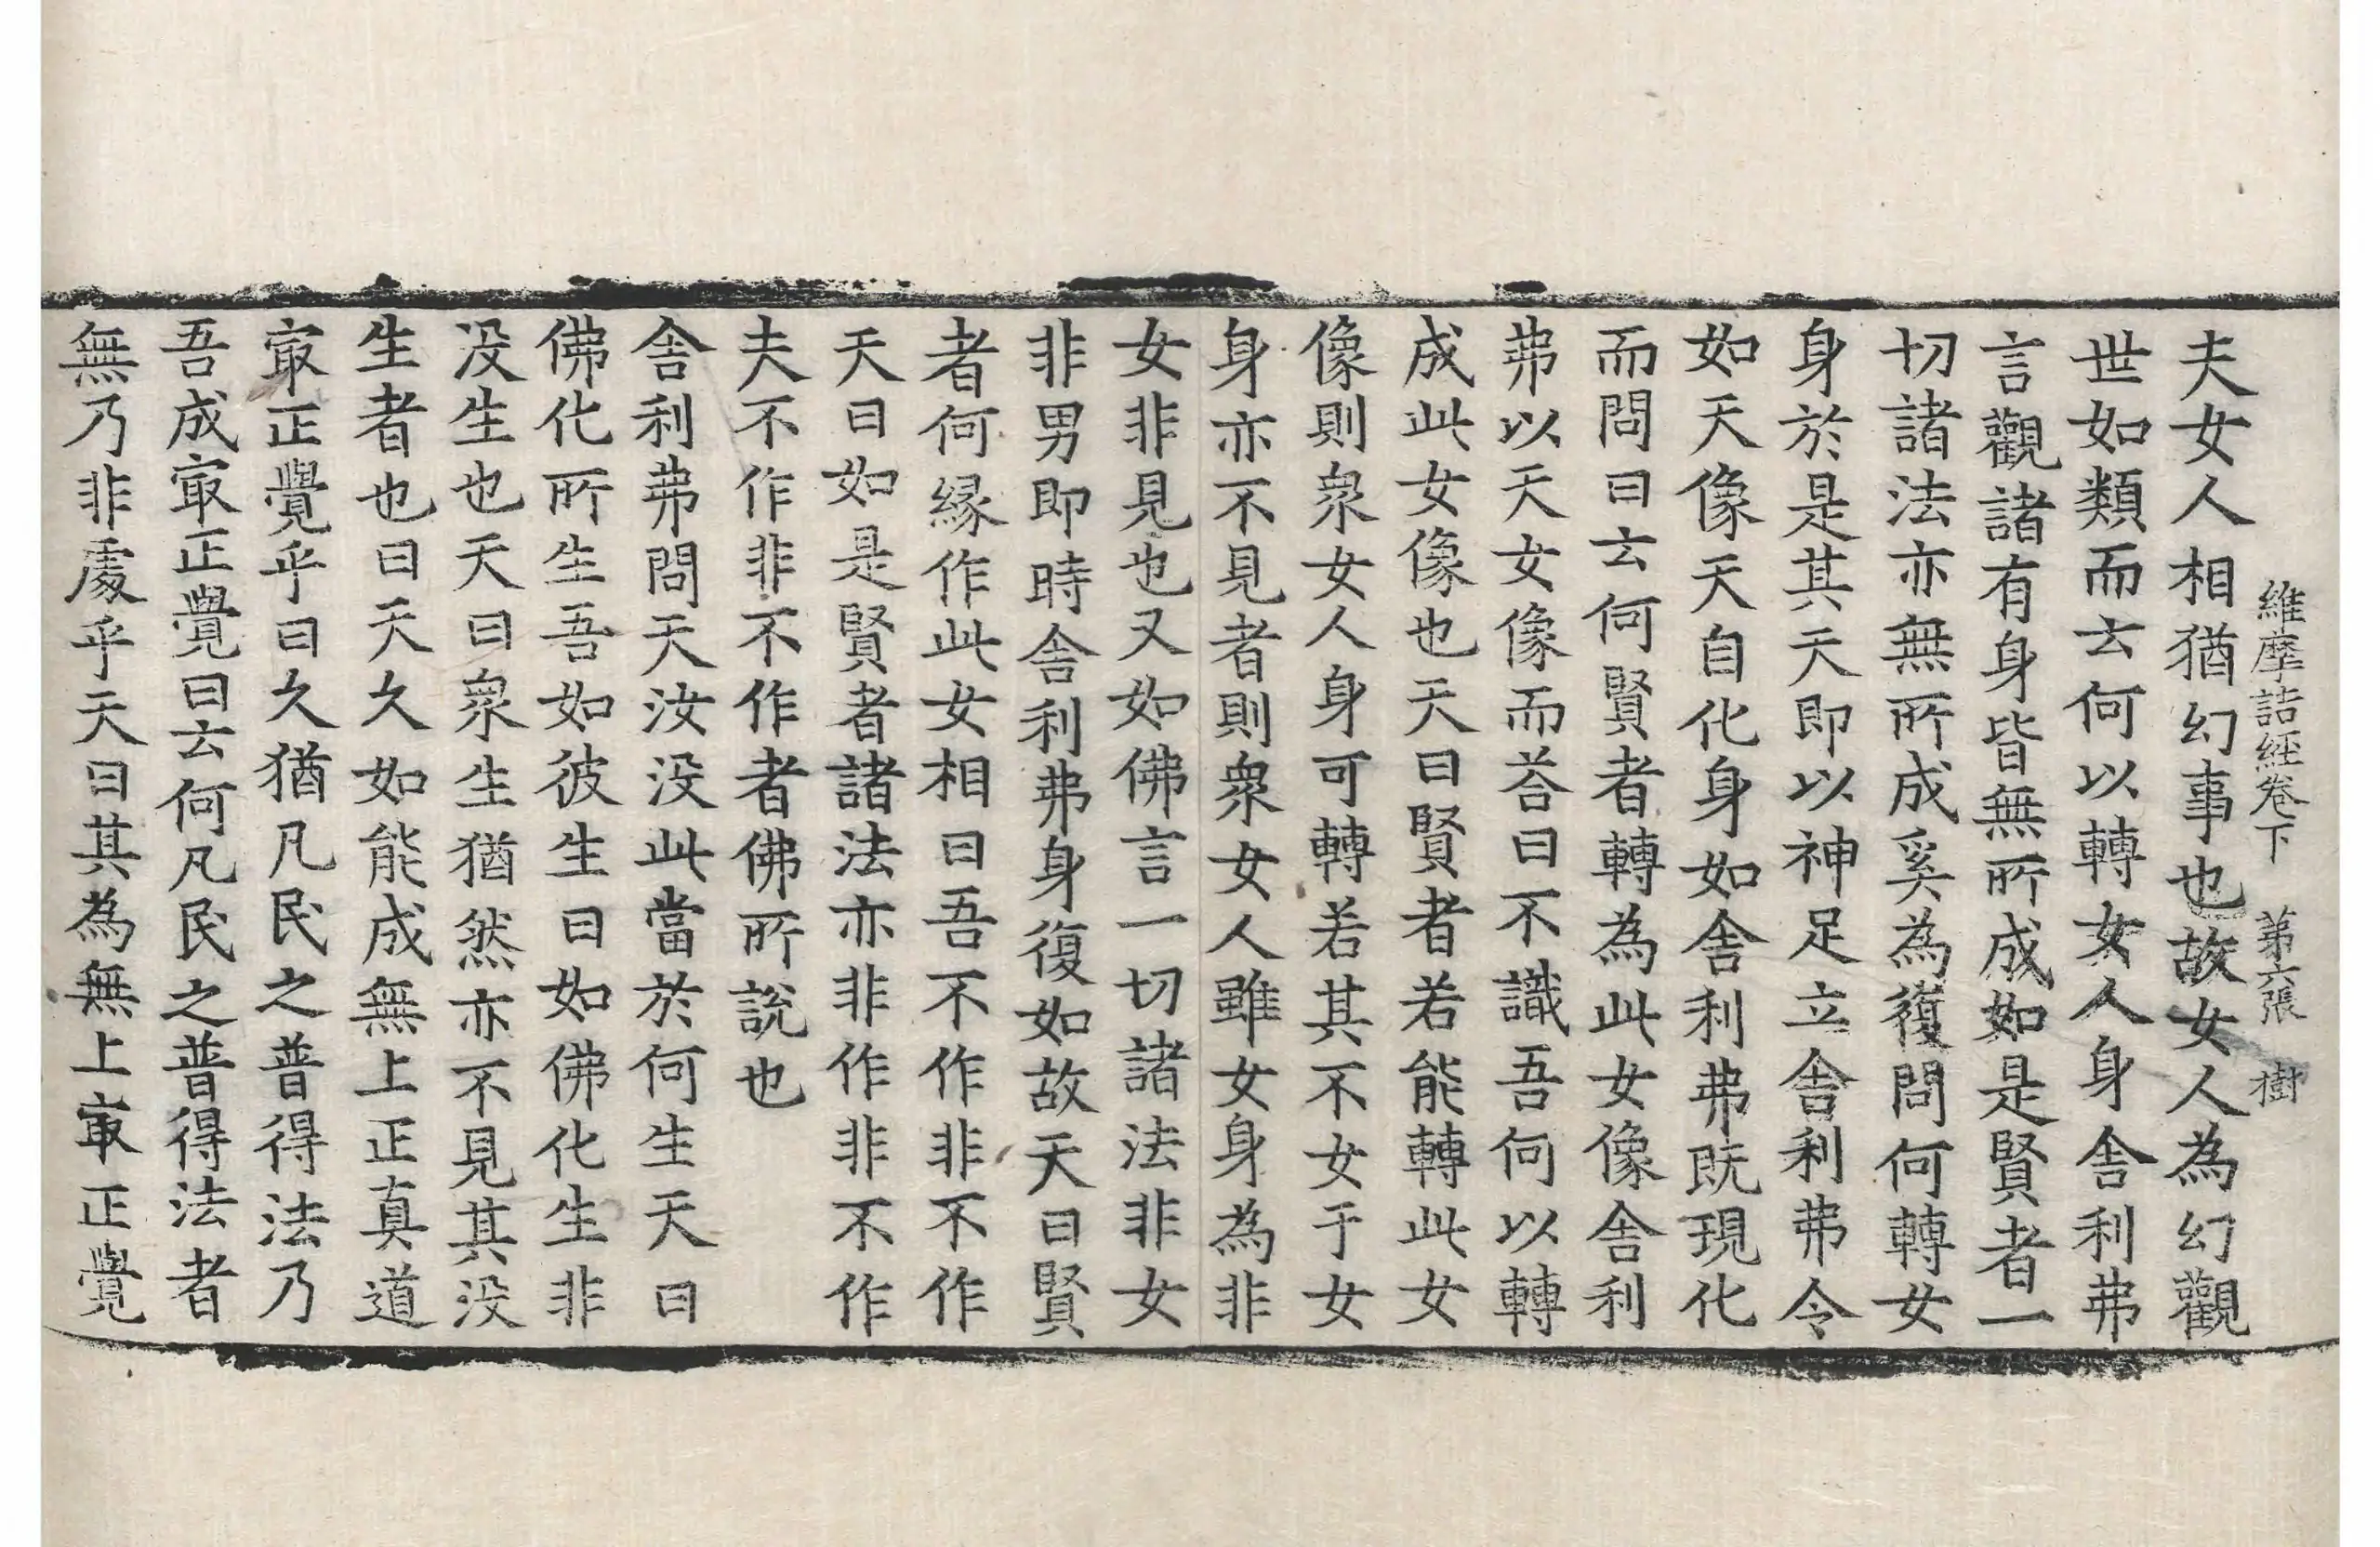 維摩詰經卷下 第六張 樹
夫女人相猶幻事也故女人為幻觀
世如類而云何以轉女人身舎利弗
言觀諸有身皆無所成如是賢者一
切諸法亦無所成奚為復問何轉女
身於是其天即以神足立舎利弗令
如天像天自化身如舎利弗既現化
而問曰云何賢者轉為此女像舎利
弗以天女像而荅曰不識吾何以轉
成此女像也天曰賢者若能轉此女
像則衆女人身可轉若其不女于女
身亦不見者則衆女人雖女身為非
女非見也又如佛言一切諸法非女
非男即時舎利弗身復如故天曰賢
者何緣作此女相曰吾不作非不作
天曰如是賢者諸法亦非作非不作
夫不作非不作者佛所說也
舎利弗問天汝没此當於何生天曰
佛化所生吾如彼生曰如佛化生非
没生也天曰衆生猶然亦不見其没
生者也曰天久如能成無上正真道
冣正覺乎曰久猶凡民之普得法乃
吾成冣正覺曰云何凡民之普得法者
無乃非處乎天曰其為無上冣正覺